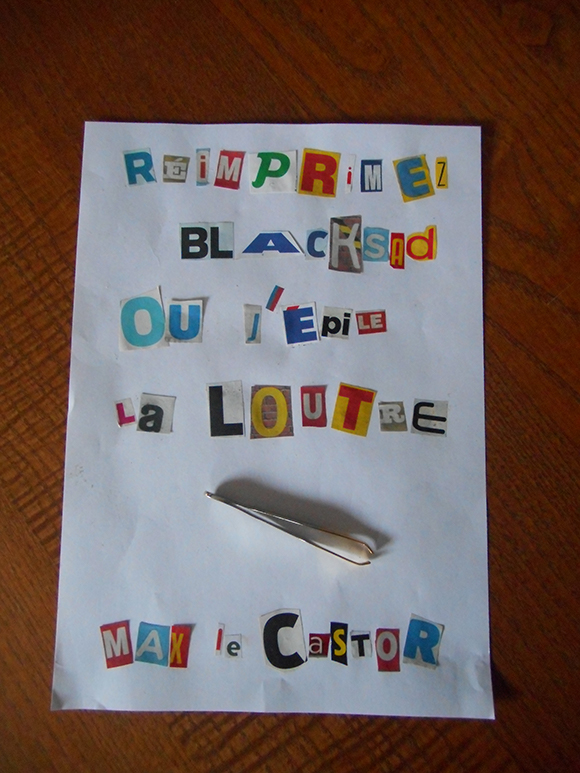 RÉiMPRiMEZ
BLACKSAD
OU j'Epile
la LOUTRE
MAX le CasTOR